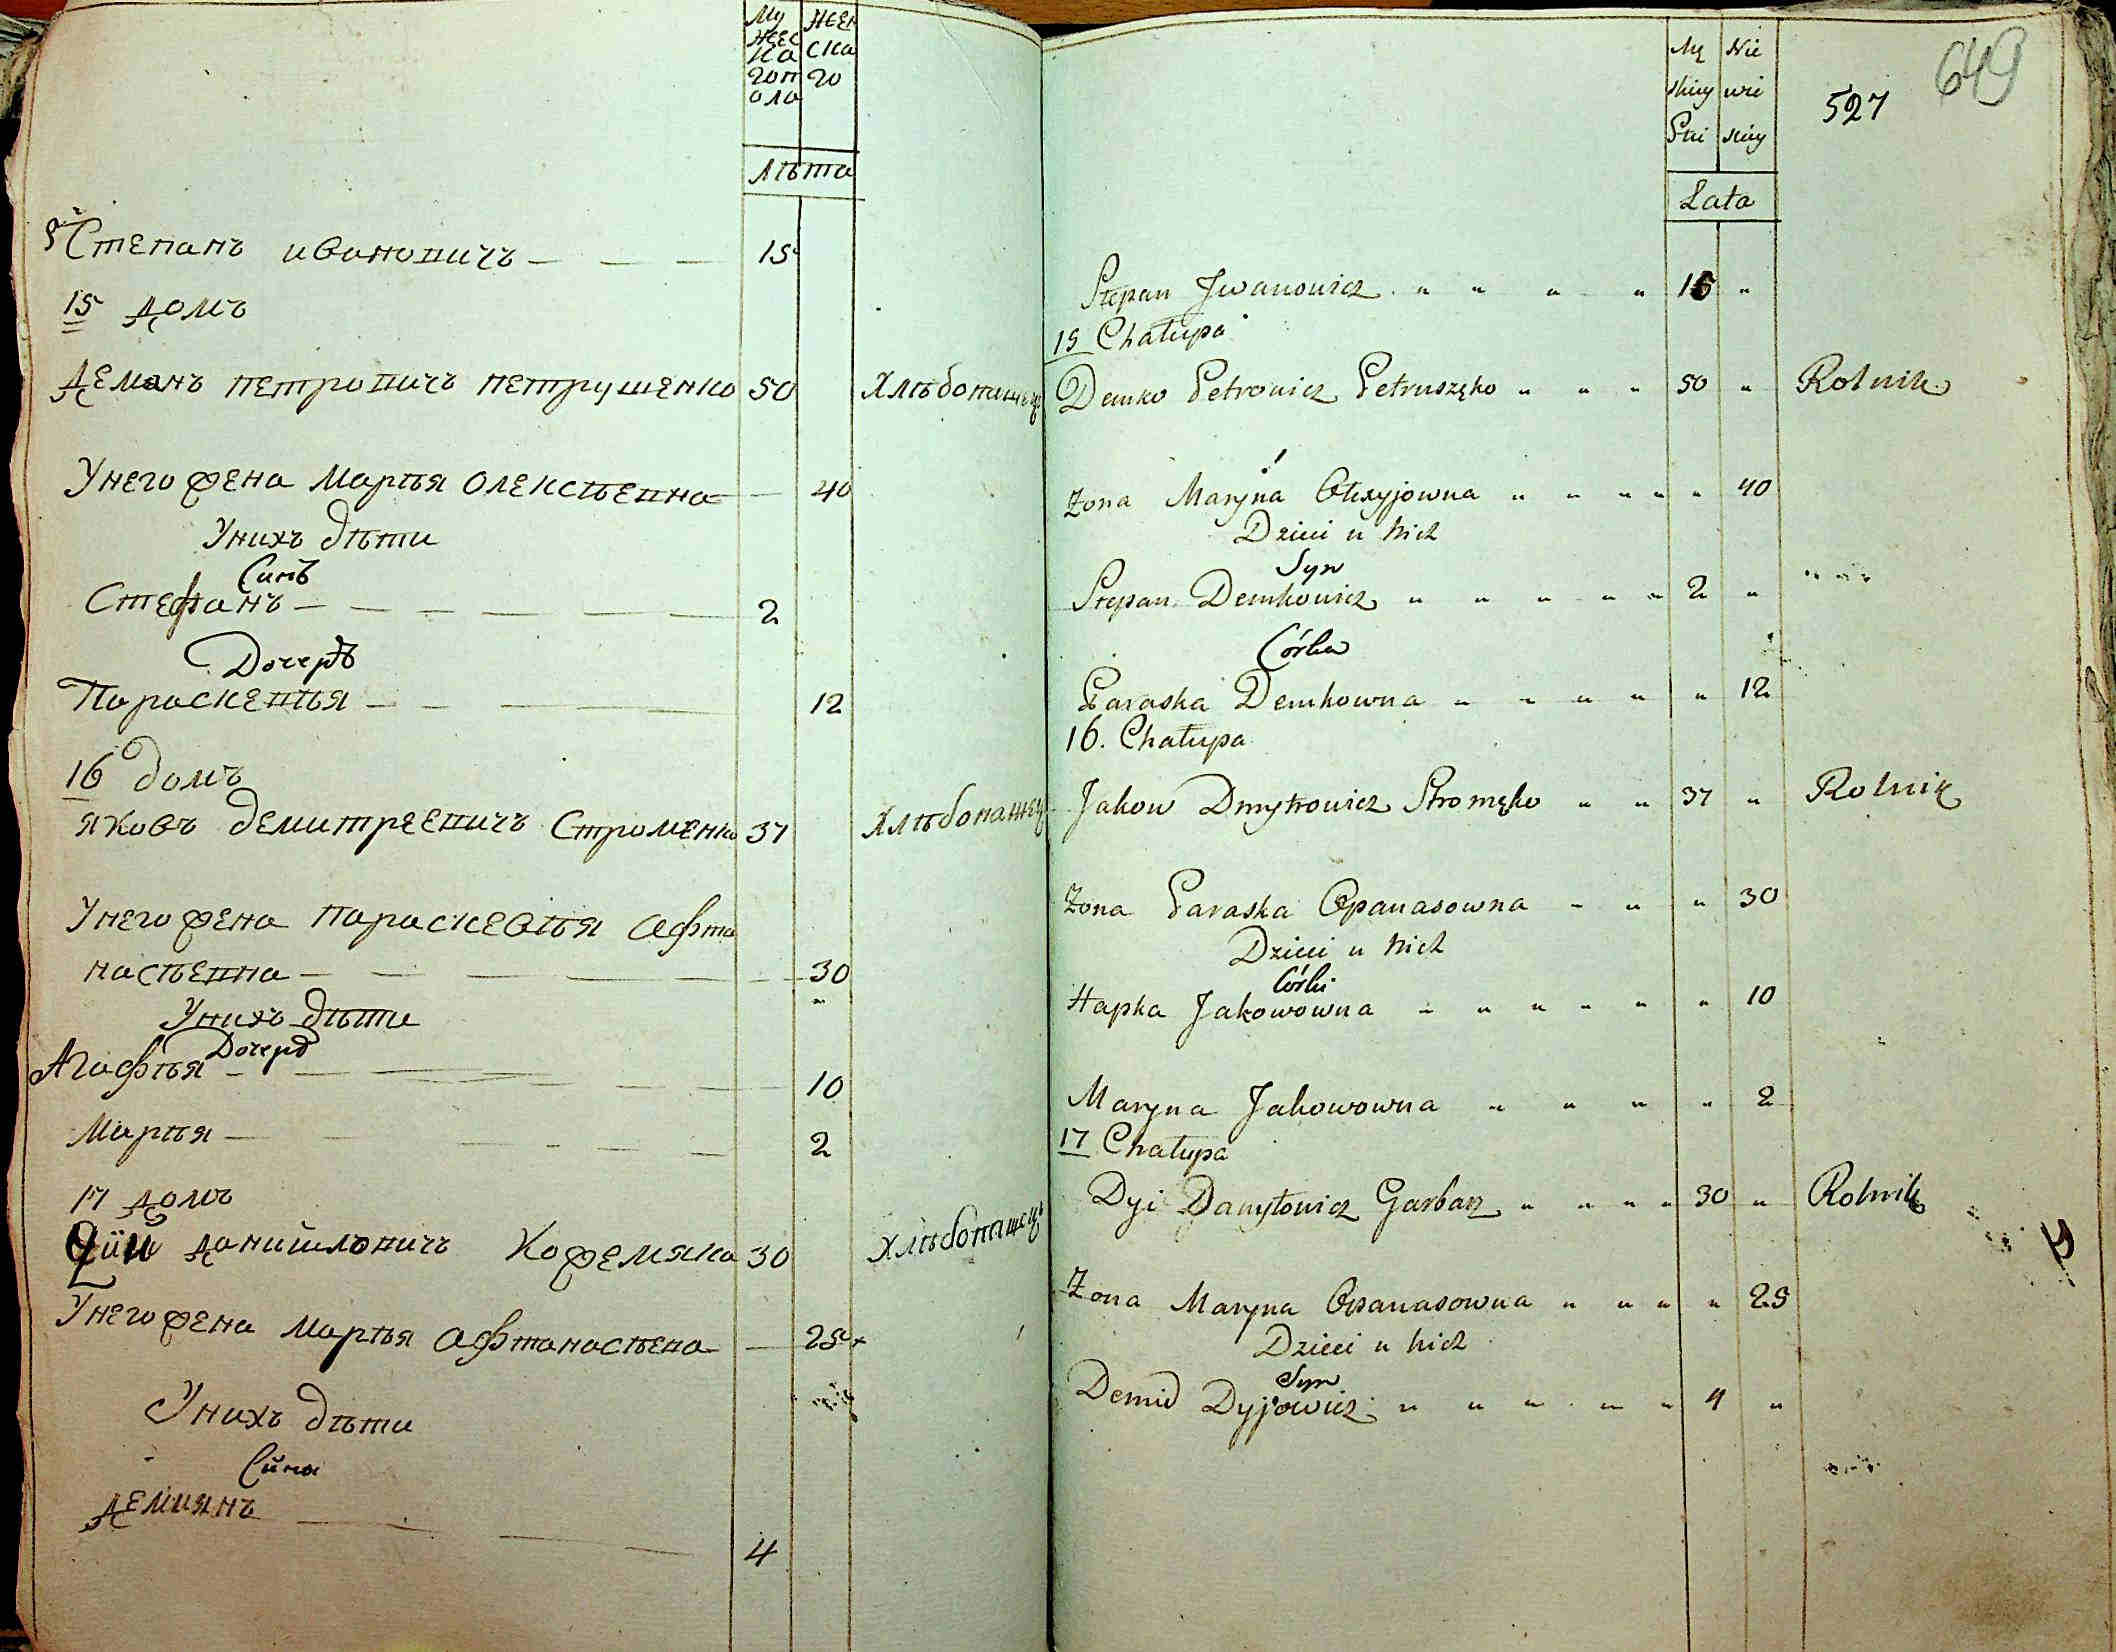 Му неес
жеес ска
ка го
гопт
ола
лѣта
Степанъ ивановичъ 15
15 домъ
Деманъ петровичъ петрушенко 50 Хлѣбопашец
Унего жена Марѣя олексѣевна 40
Унихъ дѣти
Синъ
Стефанъ 2
Дочерѣ
Параскевѣя 12
16 домъ
яковъ демитреевичъ Строменко 37 Хлѣбопашец
Унего жена параскевѣя афта
насѣевна 30
Унихъ дѣти
Дочерѣ
Агафѣя 10
Марѣя 2
17 домъ
данииловичъ Кожемяка 30 Хлѣбопашец
Унего жена Марѣя афтанасѣена 25
Унихъ дѣти
Сина
демиянъ 4
649
527
Mę Nie
skiey wie
Płci skiey
Lata
Stepan Jwanowicz 15
15 Chałupa
Demko Petrowicz Petruszęko 50 Rolnik
Żona Maryna Olexyjowna 40
Dzieci u nich
Syn
Stepan Demkowicz 2
Córka
Paraska Demkowna 12
16. Chałupa
Jakow Dmytrowicz Stromęko 37 Rolnik
Żona Paraska Opanasowna 30
Dzieci u nich
Córki
Hapka Jakowowna 10
Maryna Jakowowna 2
17 Chałupa
Dyi Danyłowicz Garbarz 30 Rolnik
Żona Maryna Opanasowna 25
Dzieci u nich
Syn
Demid Dyjowicz 4